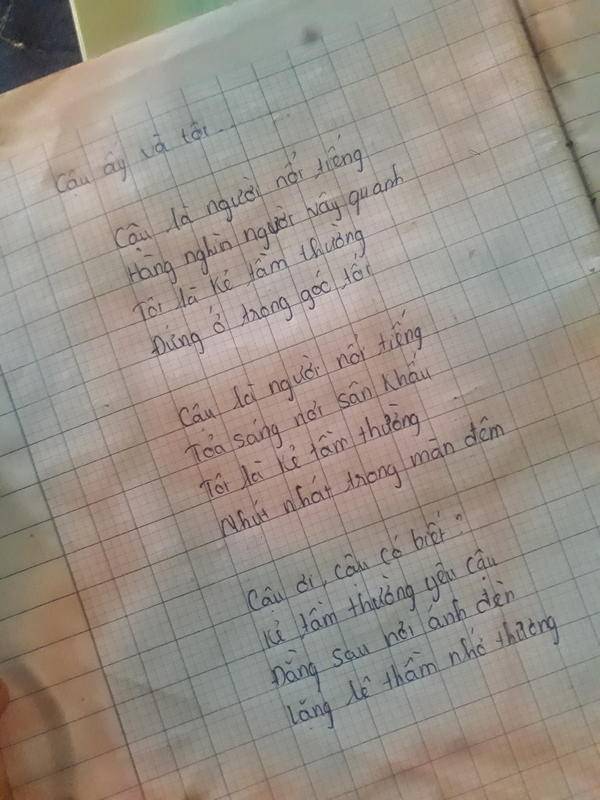 Cậu ấy và tôi...
Cậu là người nổi tiếng
Hàng nghìn người vây quanh
Tôi là kẻ tầm thường
Đứng ở trong góc tối
Cậu là người nổi tiếng
Tỏa sáng nơi sân khấu
Tôi là kẻ tầm thường
Nhút nhát trong màn đêm
Cậu ơi, cậu có biết?
Kẻ tầm thường yêu cậu
Đằng sau nơi ánh đèn
Lặng lẽ thầm nhớ thương